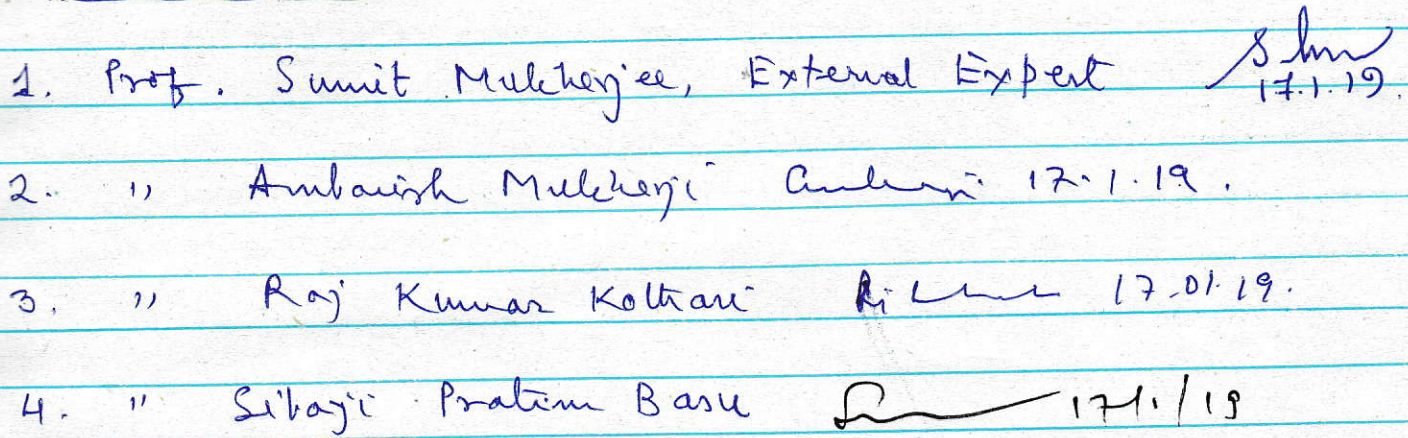 1. Prof. Sumit Mukherjee, External Expert 17.1.19.
2. " Ambarish Mukherji 17.1.19.
3. " Raj Kumar Kothari 17.01.19.
4. " Sibaji Pratim Basu 17/1/19